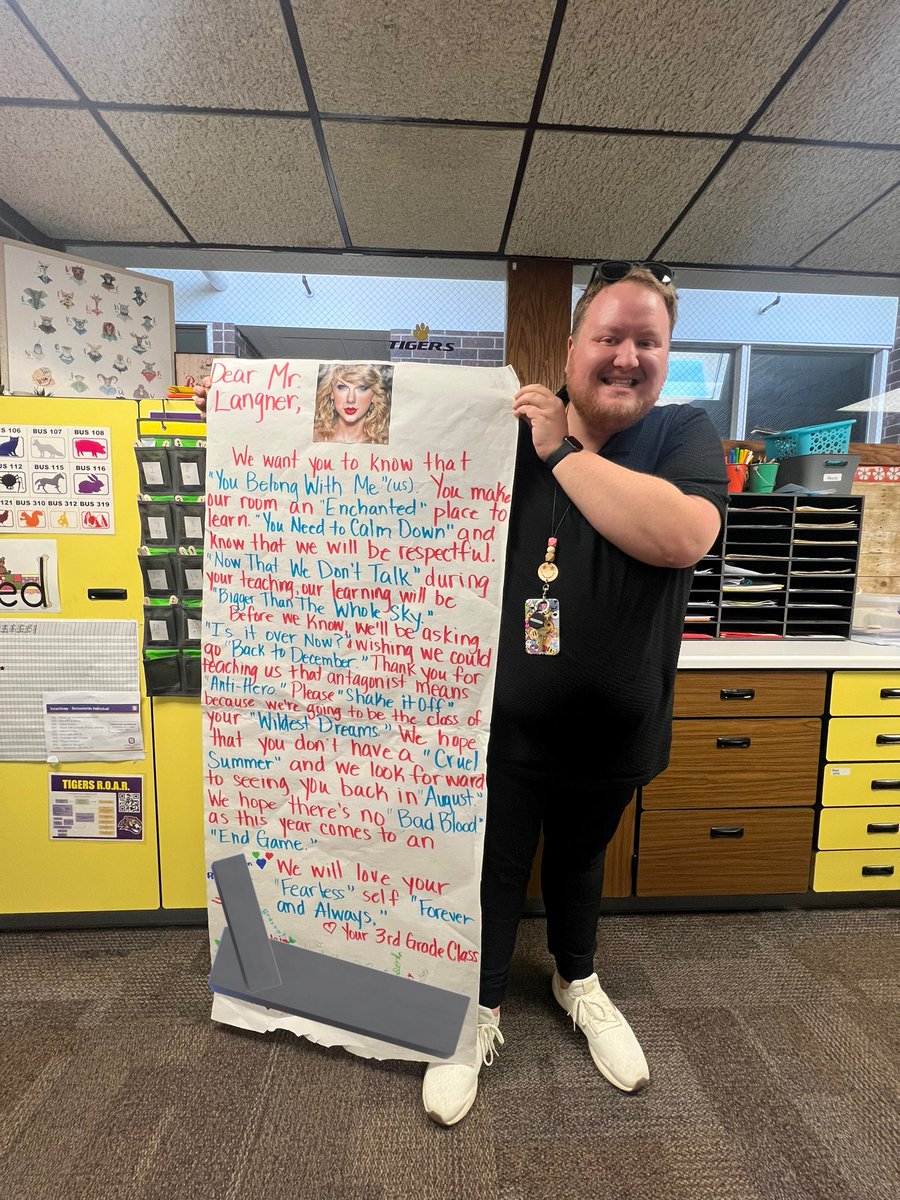 TIGERS
Dear Mr.
Langner,
We want you to know that
"You Belong With Me" (us). You make
our room an "Enchanted" place to
learn. "You Need to Calm Down" and
know that we will be respectful.
"Now That We Don't Talk" during
your teaching, our learning will be
"Bigger Than The Whole Sky."
Before we know, we'll be asking
"Is it over Now?" & wishing we could
go "Back to December." Thank you for
teaching us that antagonist means
"Anti-Hero." Please "Shake it Off"
because we're going to be the class of
your "Wildest Dreams." We hope
that you don't have a "Cruel
Summer" and we look forward
to seeing you back in "August."
We hope there's no "Bad Blood"
as this year comes to an
"End Game."
We will love your
"Fearless" self "Forever
and Always."
♡ Your 3rd Grade Class
106 BUS 107 BUS 108
112 BUS 114 BUS 116
121 BUS 310 BUS 312 BUS 319
ed
Incentives - Schoolwide Individual
TIGERS R.O.A.R.